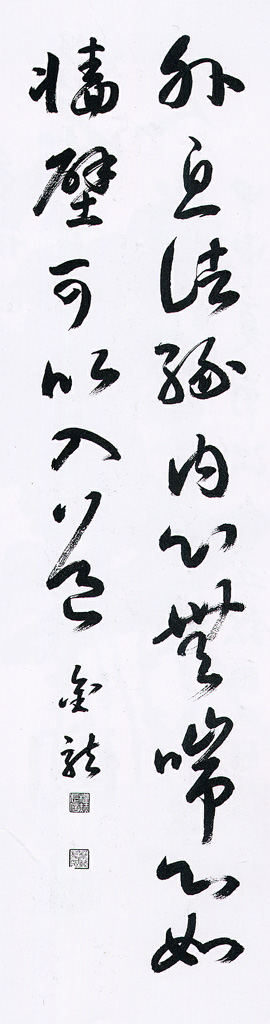 外息諸緣内心無喘心如
墻壁可以入道
金龍